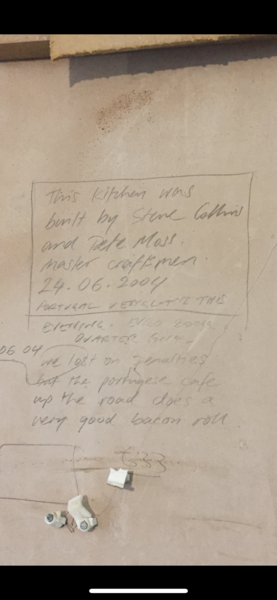 This Kitchen was
built by Steve Collins
and Pete Moss.
Master craftsmen.
24.06.2004
PORTUGAL V ENGLAND THIS
EVENING. EURO 2004
QUARTER FINAL
06 04
we lost on penalties
but the portugese cafe
up the road does a
very good bacon roll.